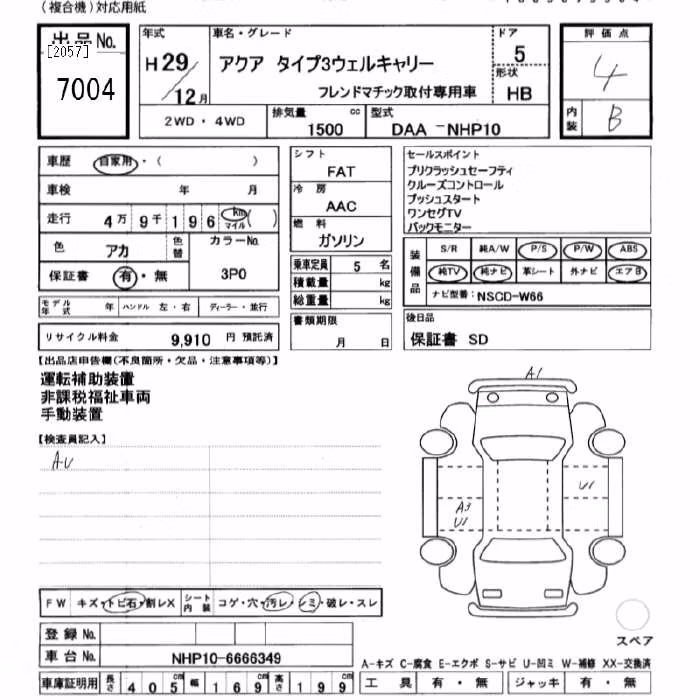 (複合機)対応用紙
出品No.
[2057]
7004
年式
H29/12月
車名・グレード
アクア タイプ3ウェルキャリー
フレンドマチック取付専用車
ドア
5
形状
HB
評価点
4
内装
B
2WD・4WD
排気量
1500
cc
型式
DAA -NHP10
車歴
自家用・( )
車検 年 月
走行 4万 9千 1 9 6 km マイル ( )
色 アカ 色替
カラーNo.
3P0
保証書 有・無
モデル年式 年 ハンドル 左・右 ディーラー・並行
リサイクル料金 9,910 円 預託済
シフト
FAT
冷房
AAC
燃料
ガソリン
乗車定員 5 名
積載量 kg
総重量 kg
書類期限
月 日
セールスポイント
プリクラッシュセーフティ
クルーズコントロール
プッシュスタート
ワンセグTV
バックモニター
装備品
S/R 純A/W P/S P/W ABS
純TV 純ナビ 革シート 外ナビ エアB
ナビ型番: NSCD-W66
後日品
保証書 SD
【出品店申告欄(不良箇所・欠品・注意事項等)】
運転補助装置
非課税福祉車両
手動装置
【検査員記入】
AU
A1
U1
A3
U1
FW キズ・トビ石・割レX シート内装 コゲ・穴・汚レ・シミ・破レ・スレ
スペア
登録No.
車台No. NHP10-6666349
車庫証明用 長さ 405 cm 幅 169 cm 高さ 199 cm
A-キズ C-腐食 E-エクボ S-サビ U-凹ミ W-補修 XX-交換済
工具 有・無 ジャッキ 有・無